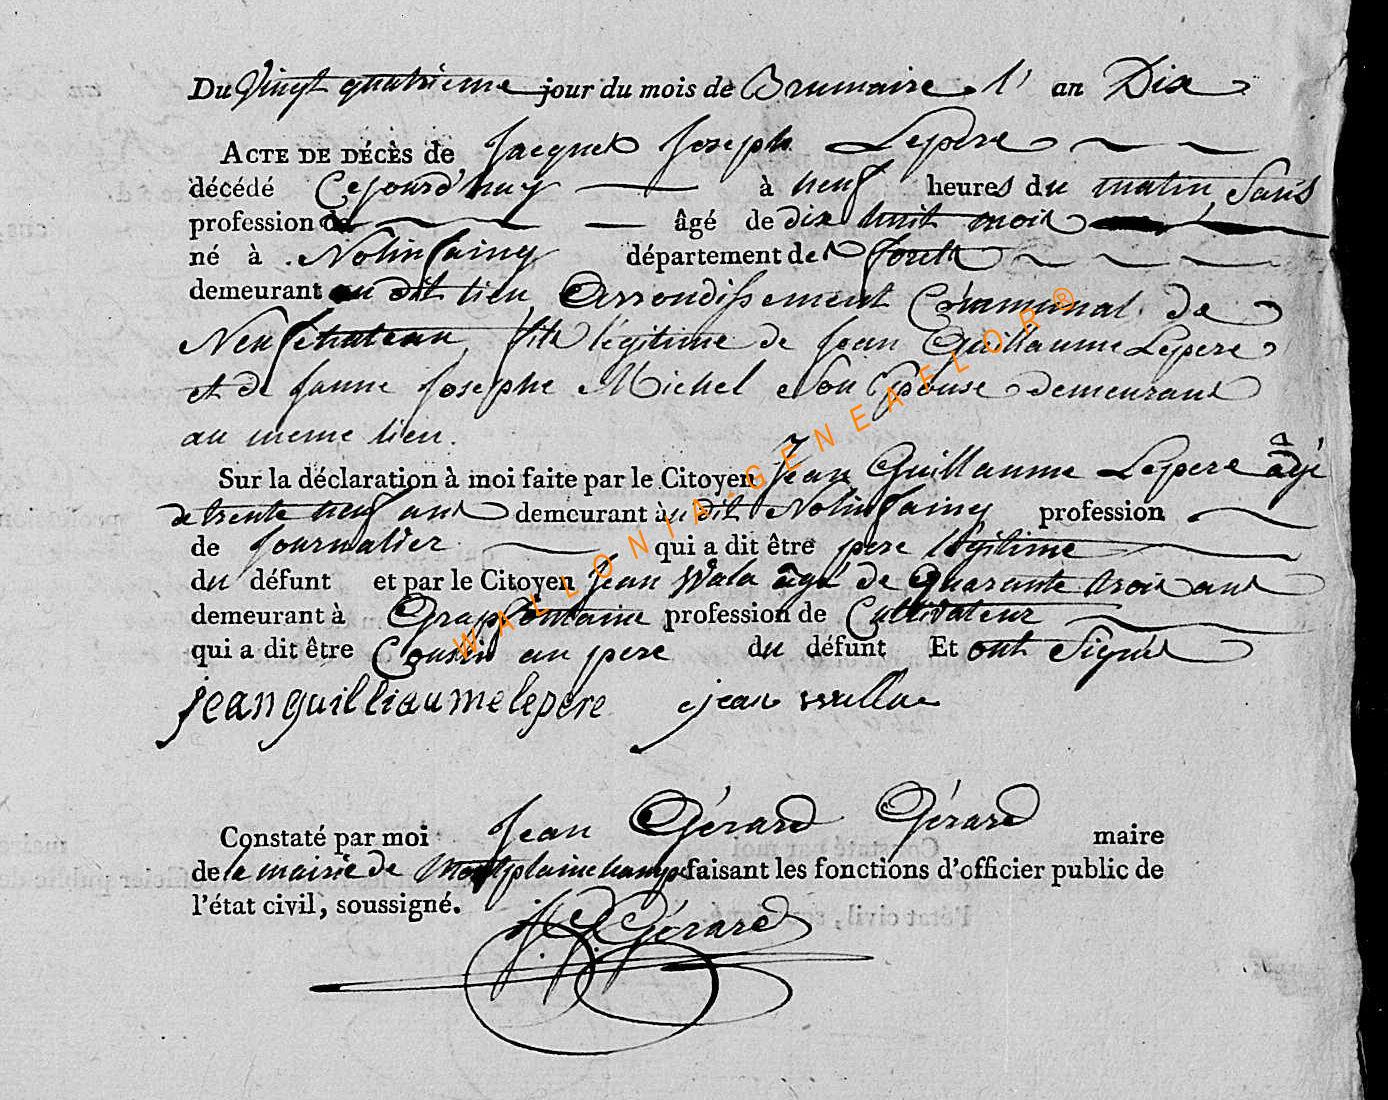 Du Vingt quatrieme jour du mois de Brumaire l' an Dix
ACTE DE DÉCÈS de Jacques Joseph Lepere
décédé Cejourd'huy à neuf heures du matin, Sans
profession âgé de dix huit mois
né à Nolinfaing département des forets
demeurant au dit lieu Arrondissement Communal de
Neufchateau, fils légitime de Jean Guillaume Lepere
et de Jeanne Josephe Michel son Epouse demeurant
au meme lieu.
Sur la déclaration à moi faite par le Citoyen Jean Guillaume Lepere âgé
de trente neuf ans demeurant au dit Nolinfaing profession
de Journalier qui a dit être pere légitime
du défunt et par le Citoyen Jean Wala âgé de Quarante trois ans
demeurant à Grapfontaine profession de Cultivateur
qui a dit être Cousin au pere du défunt Et ont Signés
jean guilliaume lepere jean wallae
Constaté par moi Jean Gérard Gérard maire
de la mairie de Montplainchamps faisant les fonctions d'officier public de
l'état civil, soussigné. J G Gérard
WALLONIA-GENEAFLOR®